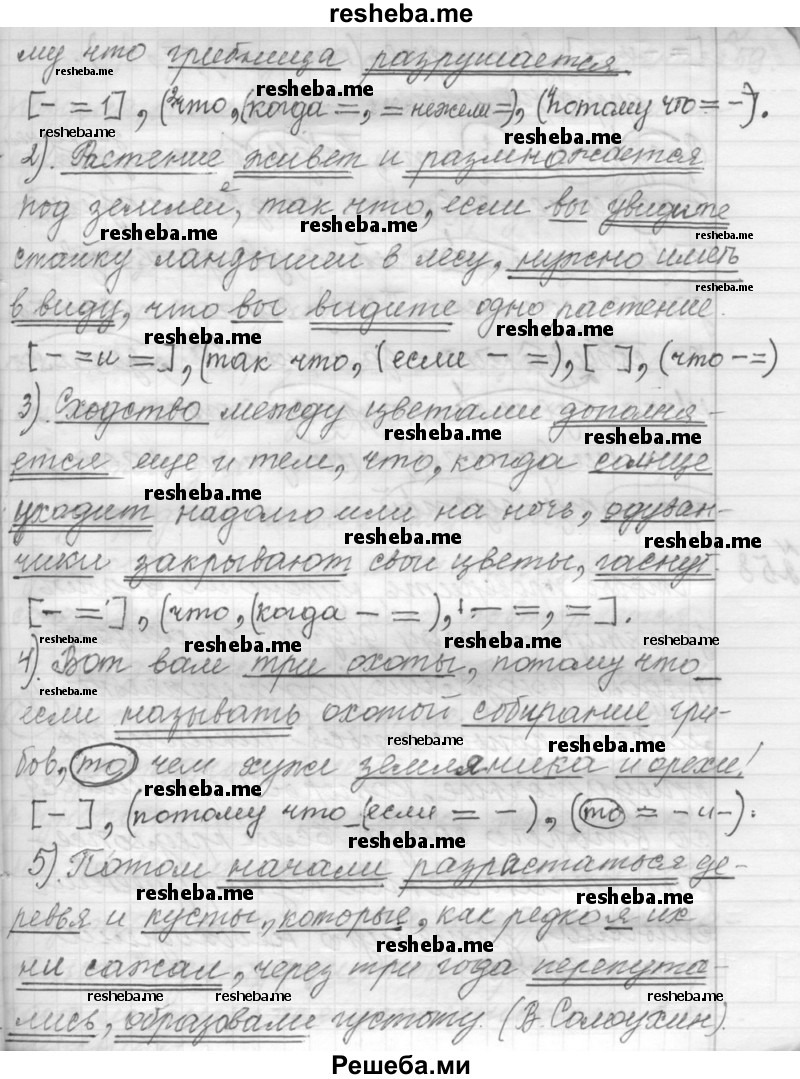 resheba.me
му что грибница разрушается
[- = 1], (²что, (когда =, = нежели =), (⁴потому что = -).
2). Растение живет и размножается
под землей, так что, если вы увидите
стайку ландышей в лесу, нужно иметь
в виду, что вы видите одно растение.
[- = и =], (так что, (если - =), [ ], (что - =)
3). Сходство между цветами дополня-
ется еще и тем, что, когда солнце
уходит надолго или на ночь, одуван-
чики закрывают свои цветы, гаснут.
[- =], (что, (когда - =), - =, =].
4). Вот вам три охоты, потому что
если называть охотой собирание гри-
бов, то чем хуже земляника и орехи!
[-], (потому что (если = -), (то = - и -).
5). Потом начали разрастаться де-
ревья и кусты, которые, как редко я их
ни сажал, через три года перепута-
лись, образовали густоту. (В. Солоухин).
Решеба.ми